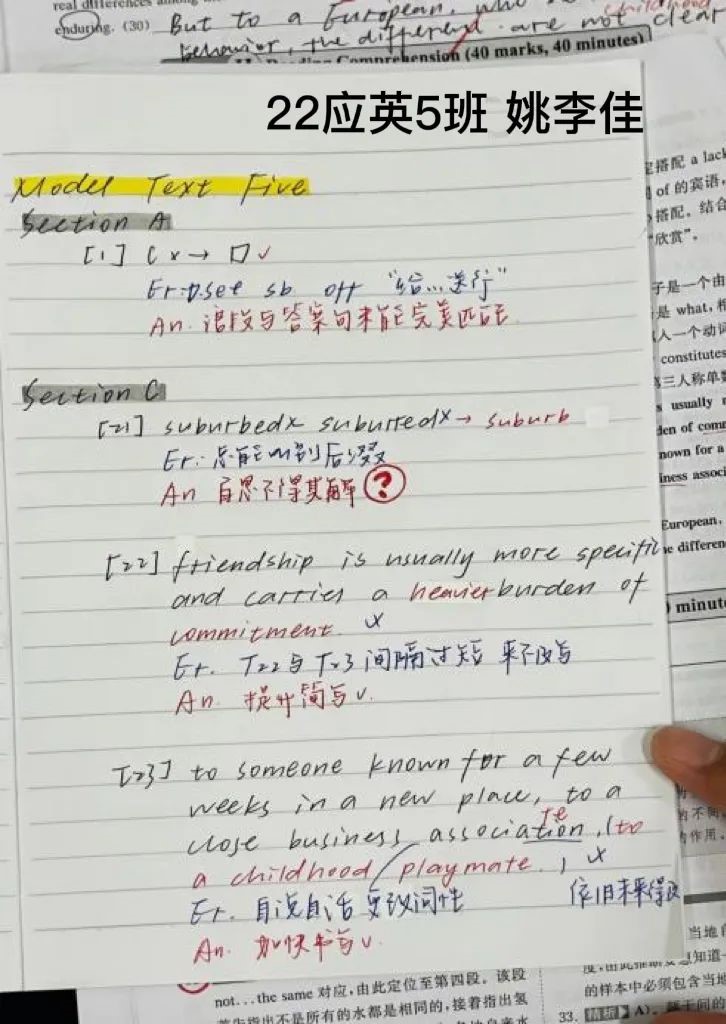 real differences among
enduring. (30) But to a European, who
childhood
behavior, the different are not clear
Comprehension (40 marks, 40 minutes)
22应英5班 姚李佳
Model Text Five
Section A
[1] C x → D √
Er: set sb off “给…送行”
An. 语段与答案句未能完美匹配
Section C
[21] suburbedx suburredx → suburb
Er: 总能听到后缀
An 百思不得其解 ?
[22] friendship is usually more specific
and carries a heavier burden of
commitment. x
Er. T22与T23间隔过短 来不及写
An. 提升简写 v.
[23] to someone known for a few
weeks in a new place, to a
te
close business association, (to
a childhood playmate.) x
Er. 自说自话 更改词性 依旧未来得及
An. 加快书写 v.
搭配 a lack
of 的宾语,
搭配。结合
“欣赏”。
子是一个由
是 what,
人一个动词
constitutes
三人称单数
usually
den of com
nown for a
iness associ
European,
e differen
minut
的不同
作用。
当地自
not…the same 对应,由此定位至第四段。该段
首先指出不是所有的水都是相同的,接着指出氢
的样本中必须包含当地
33. 精析 A)。